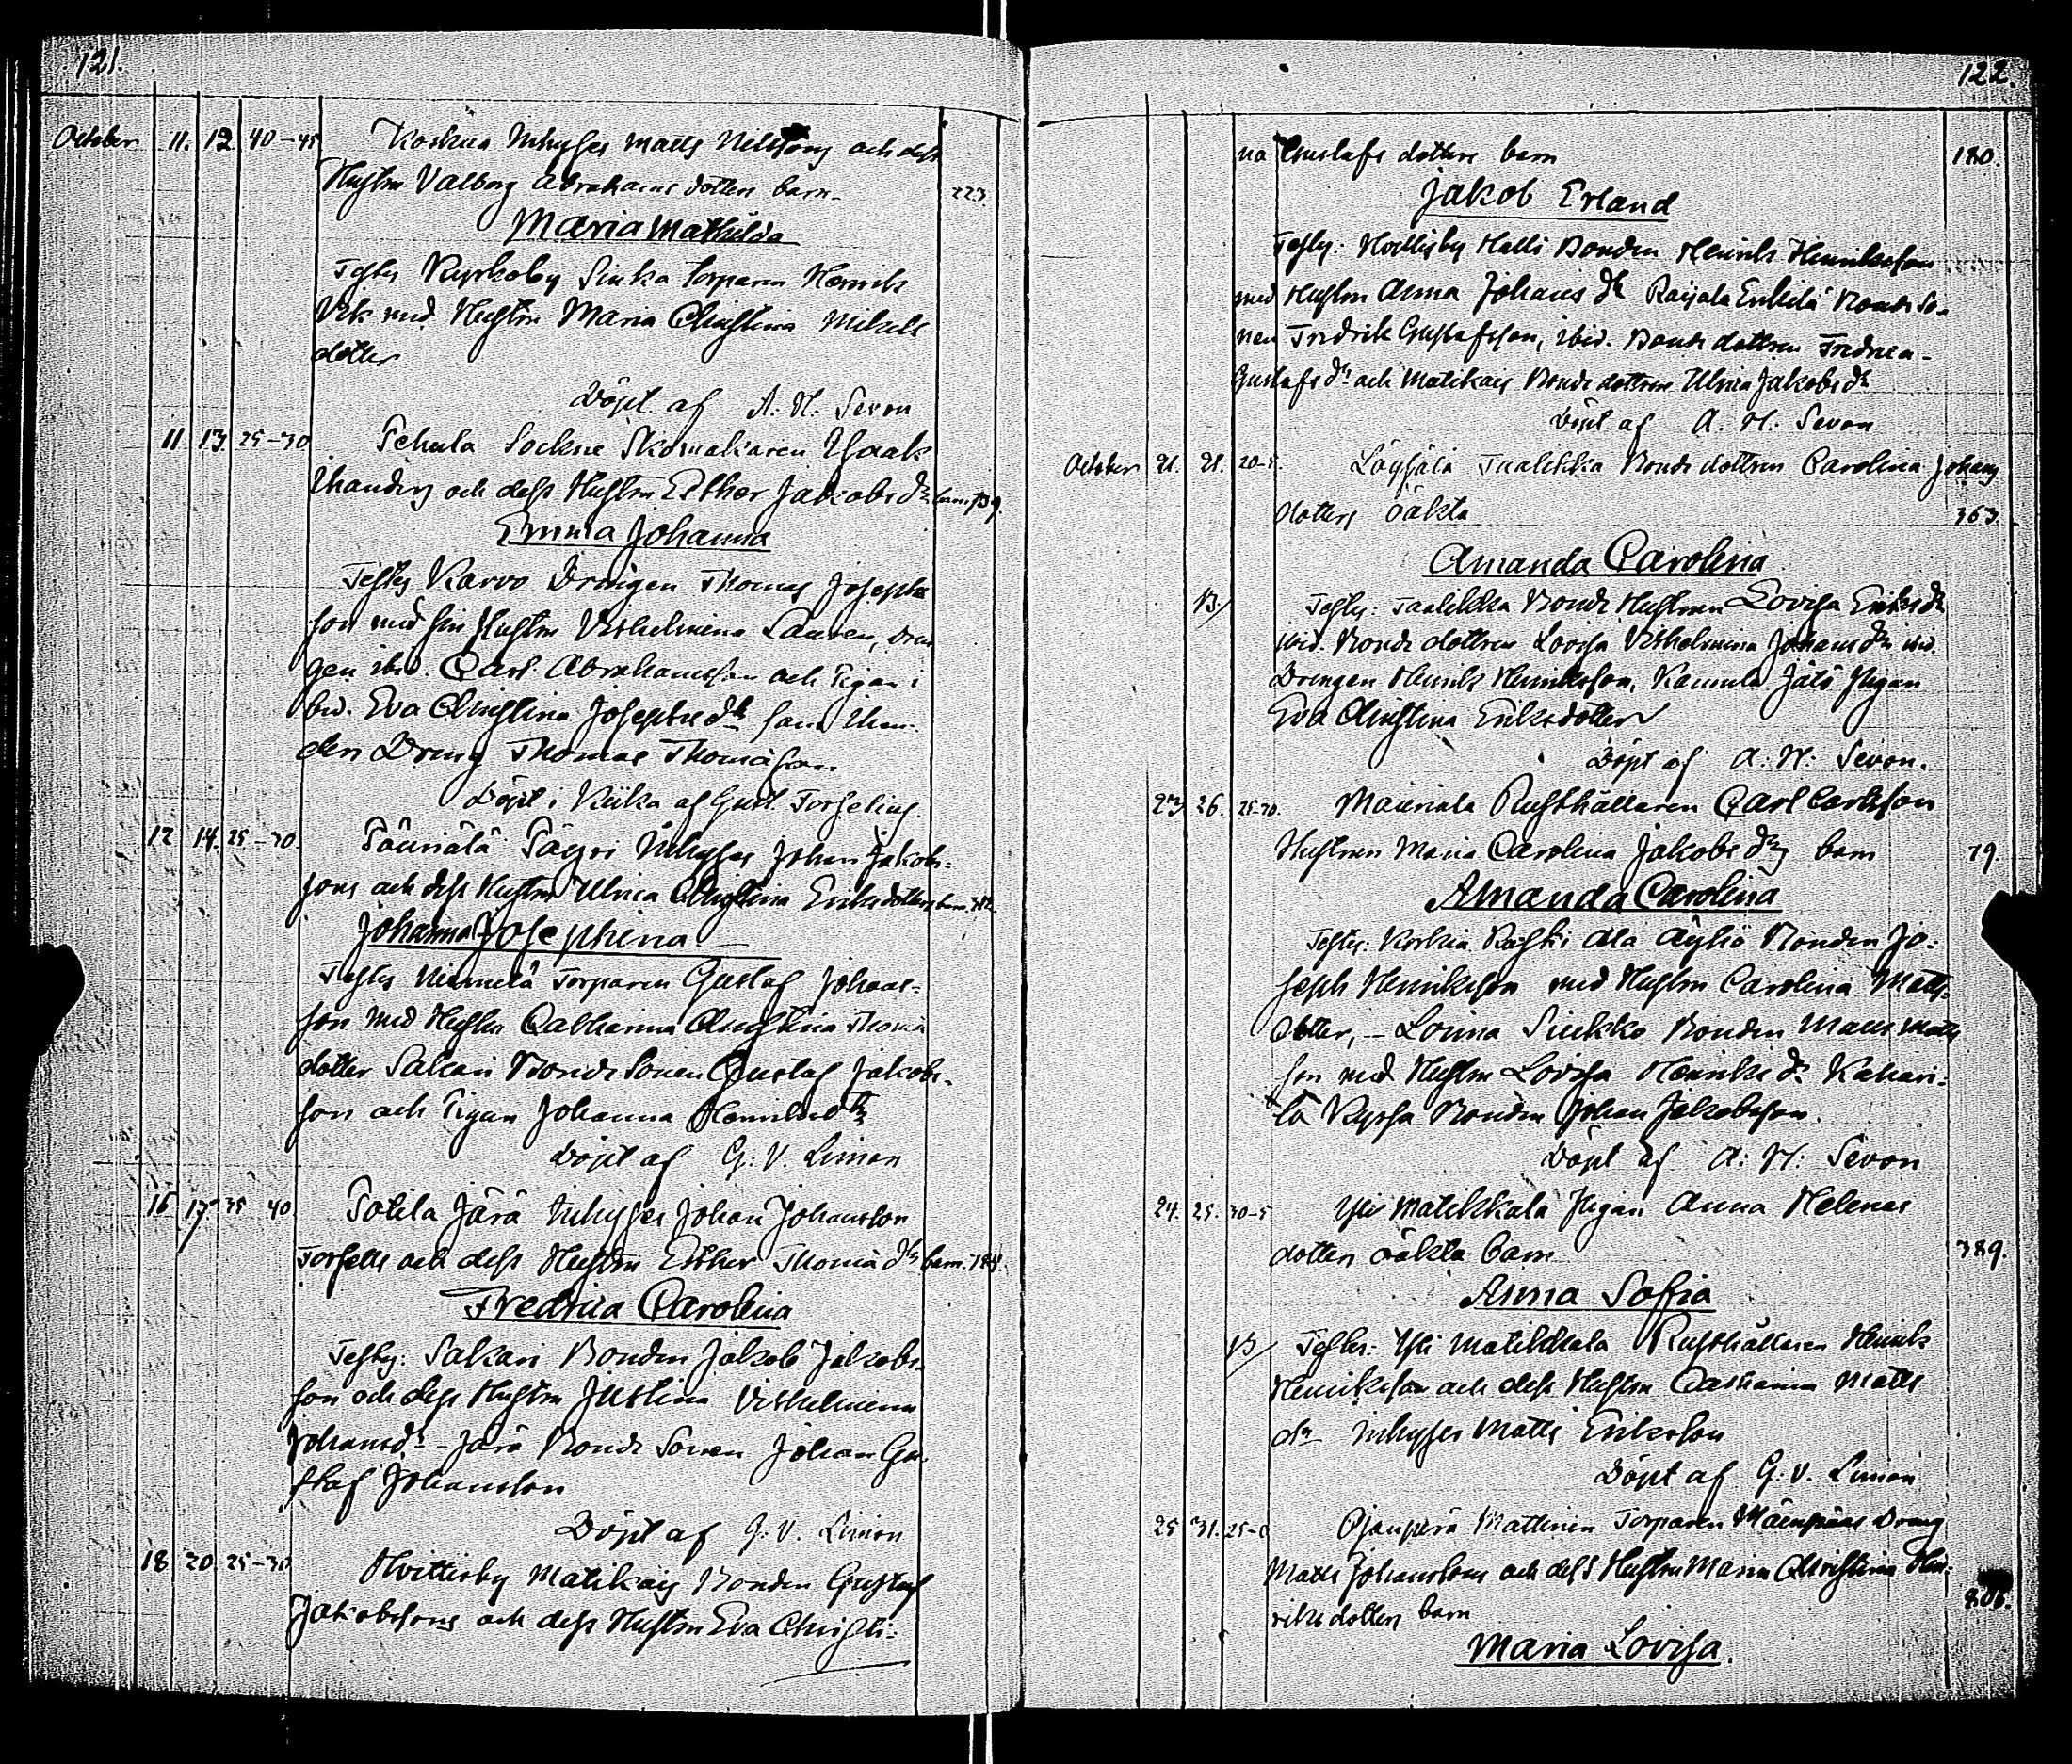 121.
October 11. 12 40-45 Koskua Inhyses Matts Nilssons och dess
Hustru Valborg Abrahams dotters barn 223.
Maria Mathilda
Testes Kyrkoby Sinka torparen Henrik
Vik med Hustru Maria Christina Mikels
dotter
Döpt af A: H: Sevon
11 13 25-30 Pehula Sockne Skomakaren Isaak
och dess Hustru Esther Jakobs dr barn
Emma Johanna
Testes Karvo Drängen Thomas Josephs
son med sin Hustru Vilhelmina Lauren, drän
gen ibid. Carl Abrahamsson och Pigan i
bid. Eva Christina Josephs dr
den Dräng Thomas Thomasson
Döpt i Kiika af Gust. Forselius.
12 14. 25-30. Inhyses Johan Jakobs-
sons och dess Hustru Ulrica Christina Eriksdotters barn
Johanna Josephina
Testes Niemelä Torparen Gustaf Johans-
son med Hustru Catharina Christina Thomas
dotter Sakari Bonde Sonen Gustaf Jakobs-
son och Pigan Johanna Henriksdr
Döpt af G: V. Limon
16 17 35 40 Potila Järä Inhyses Johan Johansson
Forsells och dess Hustru Esther Thomas dr barn.
Fredrica Carolina
Testes: Sakari Bonden Jakob Jakobs-
son och dess Hustru Justina Vilhelmina
Johansdr - Järä Bonde Sonen Johan Gu-
staf Johansson
Döpt af G. V. Limon
18 20. 25-30 Hvittisby Matikais Bonden Gustaf
Jakobssons och dess Hustru Eva Christi-
122.
na Gustafs dotters barn 180.
Jakob Erland
Testes: Hvittisby Halli Bonden Henrik Henriksson
med Hustru Anna Johans dr Raijala Erkilä Bonde So-
nen Fredrik Gustafsson, ibid. Bonde dottren Fredrica
Gustafs dr och Matikais Bonde dottren Ulrica Jakobs dr
Döpt af A. H: Sevon
October 21. 21. 20-5. Löysälä Taalikka Bonde dottren Carolina Johans
dotters oäkta 363.
Amanda Carolina
B/ Testes: Taalikka Bonde Hustrun Lovisa Eriks dr
ibid. Bonde dottren Lovisa Vilhelmina Johans dr ibid.
Drengen Henrik Henriksson, Kaurula Jälö Pigan
Eva Christina Eriksdotter
Döpt af A: H: Sevon.
23 26. 25-30. Mauriala Rusthållaren Carl Carlsson
Hustrun Maria Carolina Jakobs drs barn 79.
Amanda Carolina
Testes: Koskia Raski Ala Äyhö Bonden Jo-
seph Henriksson med Hustru Carolina Matts-
dotter, - Loima Sinkko Bonden Matts Matts
son med Hustru Lovisa Henriks dr Kahari-
la Kyssa Bonden Johan Jakobsson.
Döpt af A: H: Sevon
24. 25. 30-5 Yli Matikkala Pigan Anna Helenas
dotters oäkta barn 389.
Anna Sofia
B/ Testes: Yli Matikkala Rusthållaren Henrik
Henriksson och dess Hustru Catharina Matts
dr Inhyses Matts Eriksson
Döpt af G: V. Limon
25 31. 25-0 Ojanperä Mattinen Torparen Mäenpään Dräng
Matts Johanssons och dess Hustru Maria Christina Hen-
riks dotters barn 806.
Maria Lovisa.